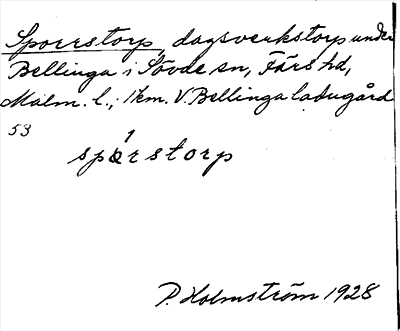 Sporrstorp, dagsverkstorp under
Bellinga i Sövde sn, Färs hd,
Malm. l.; 1 km. V. Bellinga ladugård
53
spòrstorp
P. Holmström 1928